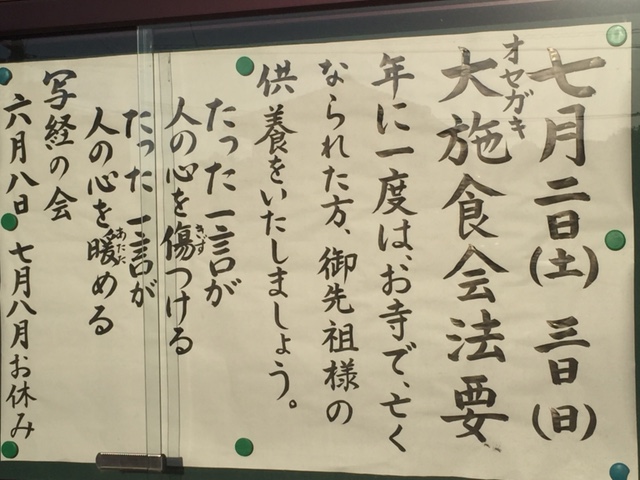 七月二日(土) 三日(日)
大施食会法要
オセガキ
年に一度は、お寺で、亡く
なられた方、御先祖様の
供養をいたしましょう。
たった一言が
人の心を傷つける
きず
たった一言が
人の心を暖める
あたた
写経の会
六月八日 七月八月お休み